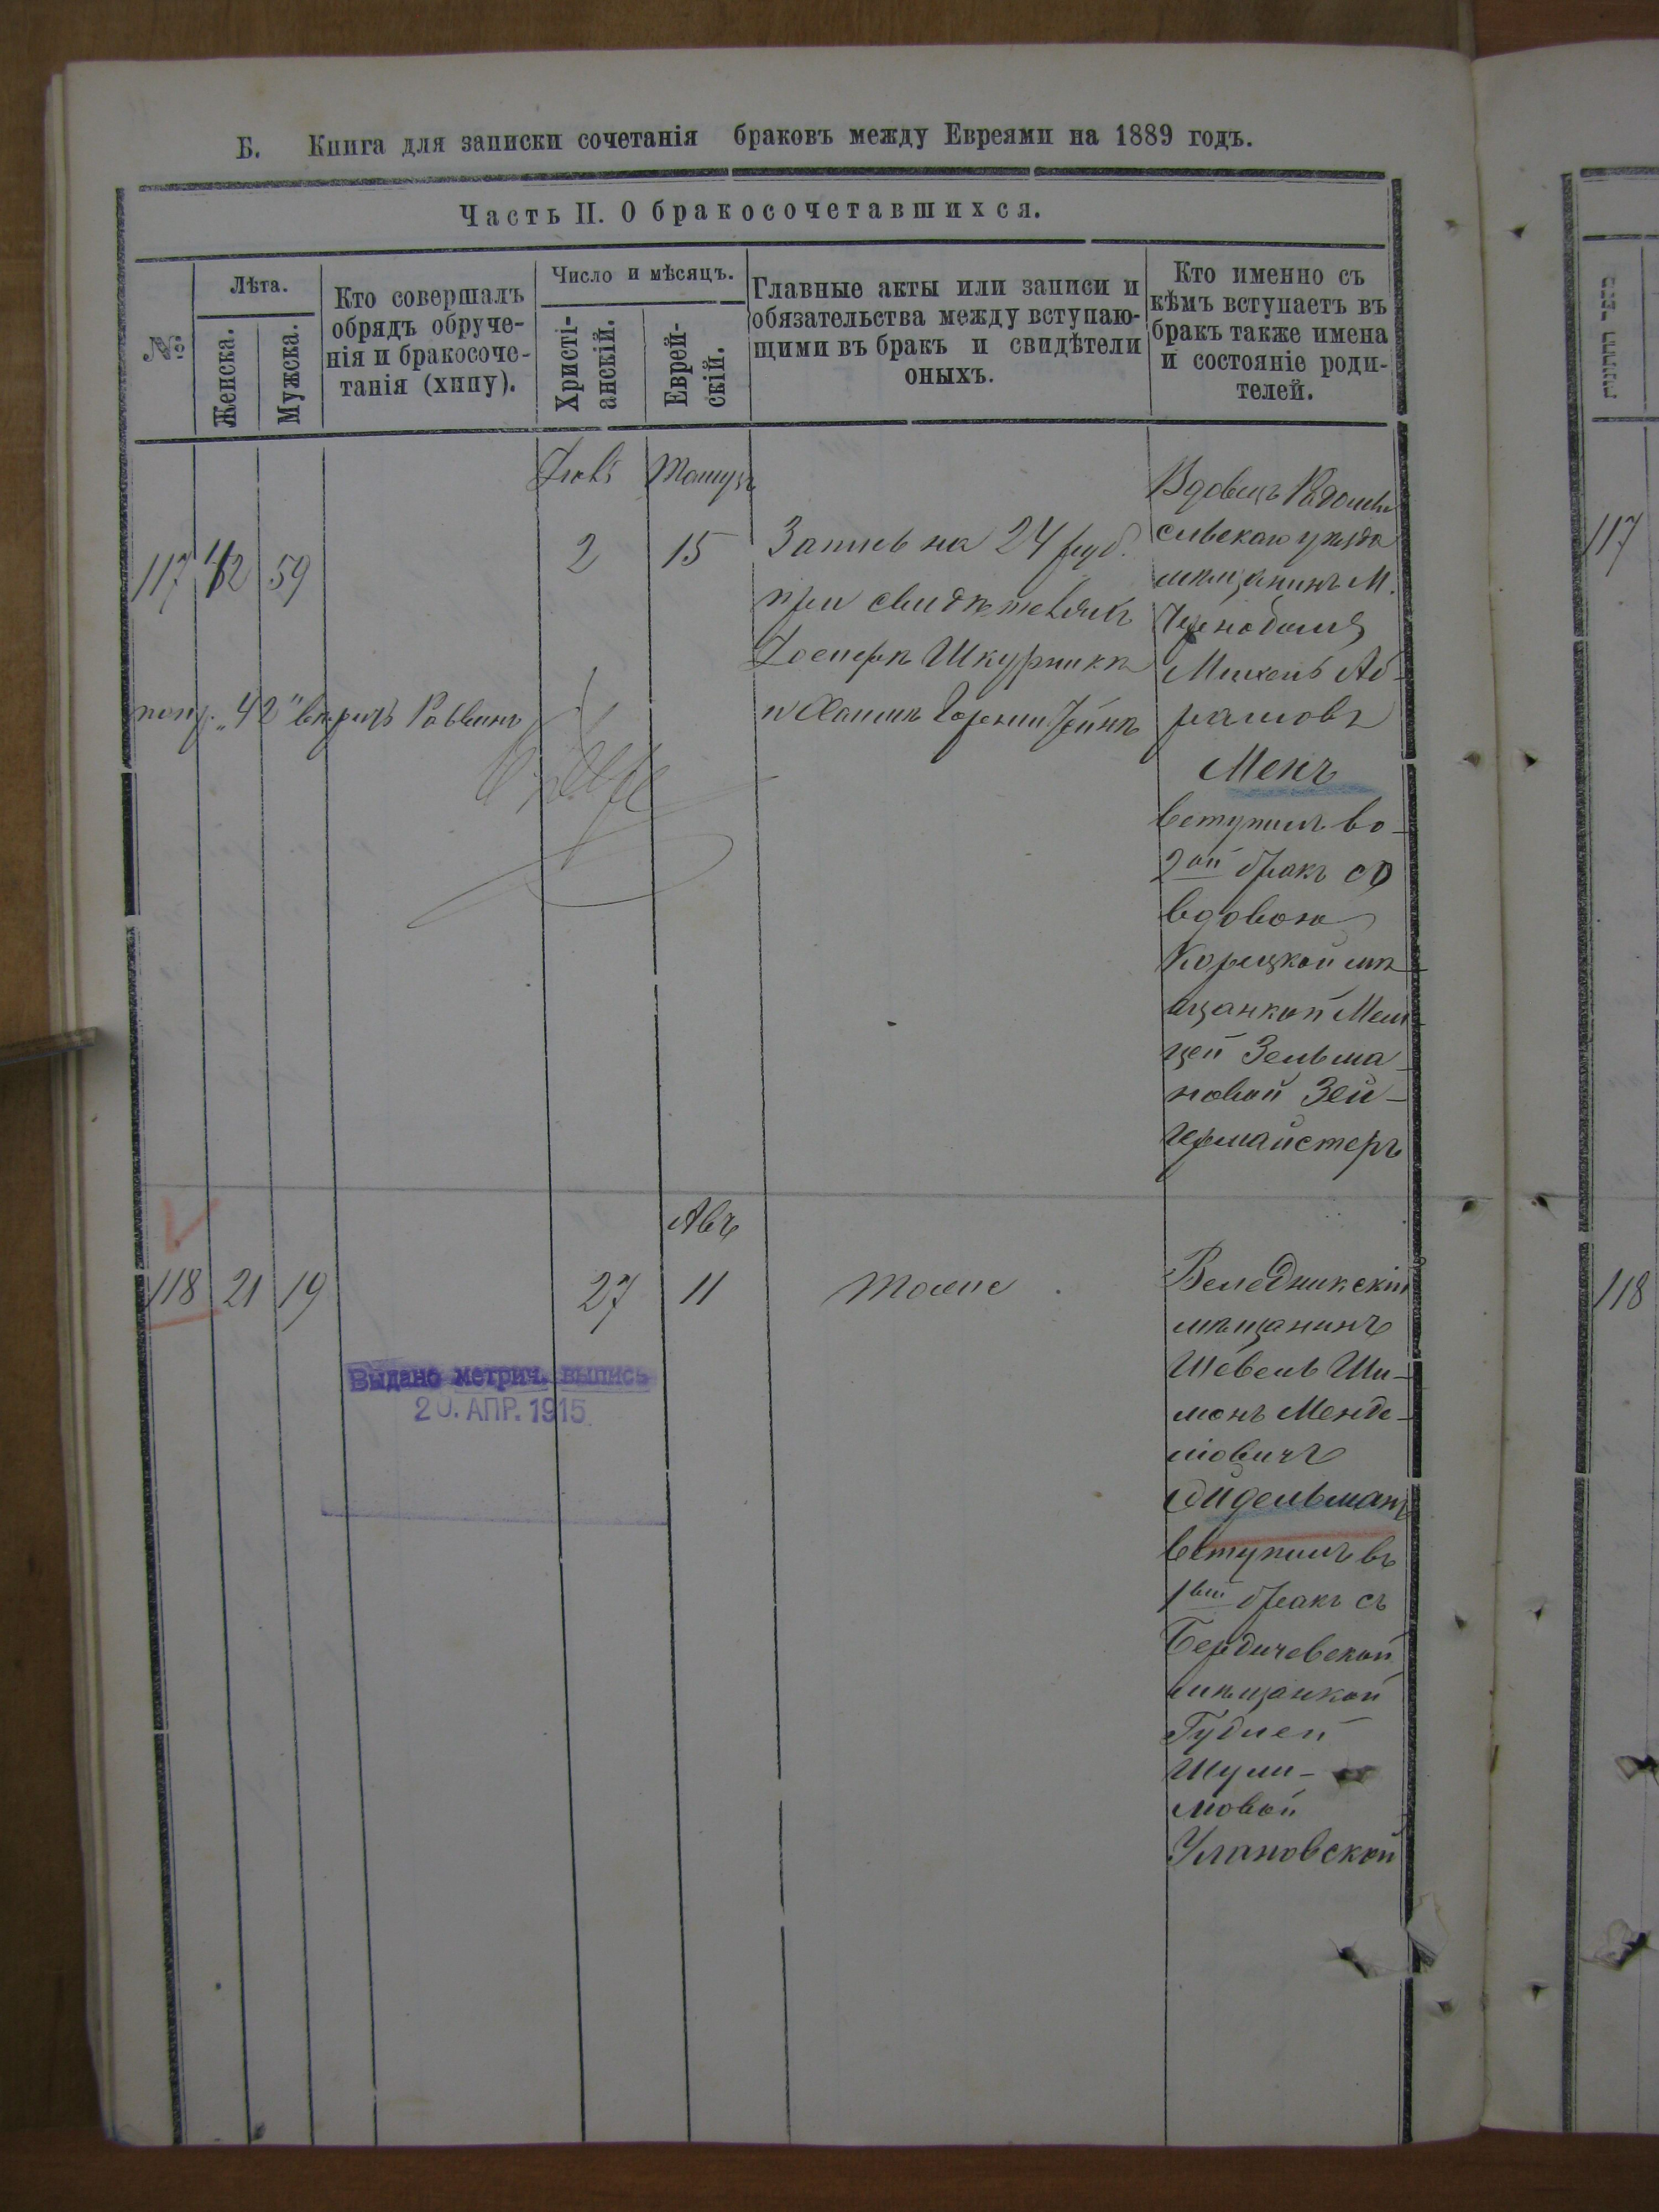 Б. Книга для записки сочетанія браковъ между Евреями на 1889 годъ.
Часть II. О бракосочетавшихся.
№
Лѣта.
Женска.
Мужска.
Кто совершалъ
обрядъ обруче-
нія и бракосоче-
танія (хипу).
Число и мѣсяцъ.
Христі-
анскій.
Еврей-
скій.
Главные акты или записи и
обязательства между вступаю-
щими въ бракъ и свидѣтели
оныхъ.
Кто именно съ
кѣмъ вступаетъ въ
бракъ также имена
и состояніе роди-
телей.
Іюль Тамузъ
117 42 59
2 15
Запись на 24 руб.
при свидѣтеляхъ
Іосифѣ Шкурникѣ
и Хаимѣ
Вдовецъ Радомы
сльскаго уѣзда
мѣщанинъ М.
Чернобыля
Михель Аб-
рамовъ
Менъ
вступилъ во-
2ой бракъ со
вдовою
Корецкой мѣ-
щанкой Мем-
цей Зельма-
новой Зей-
гермайстеръ
попр. „42" вѣрить Раввинъ
Авъ
118 21 19
27 11
тоже
Веледникскій
мѣщанинъ
Шевель Ши-
монъ Менде-
лiовичъ
Эйдельманъ
вступилъ въ
1вый бракъ съ
Бердичевской
мѣщанкой
Гудлей
Шули-
мовой
Улановской
Выдано метрич. выпись
20. АПР. 1915
117
118